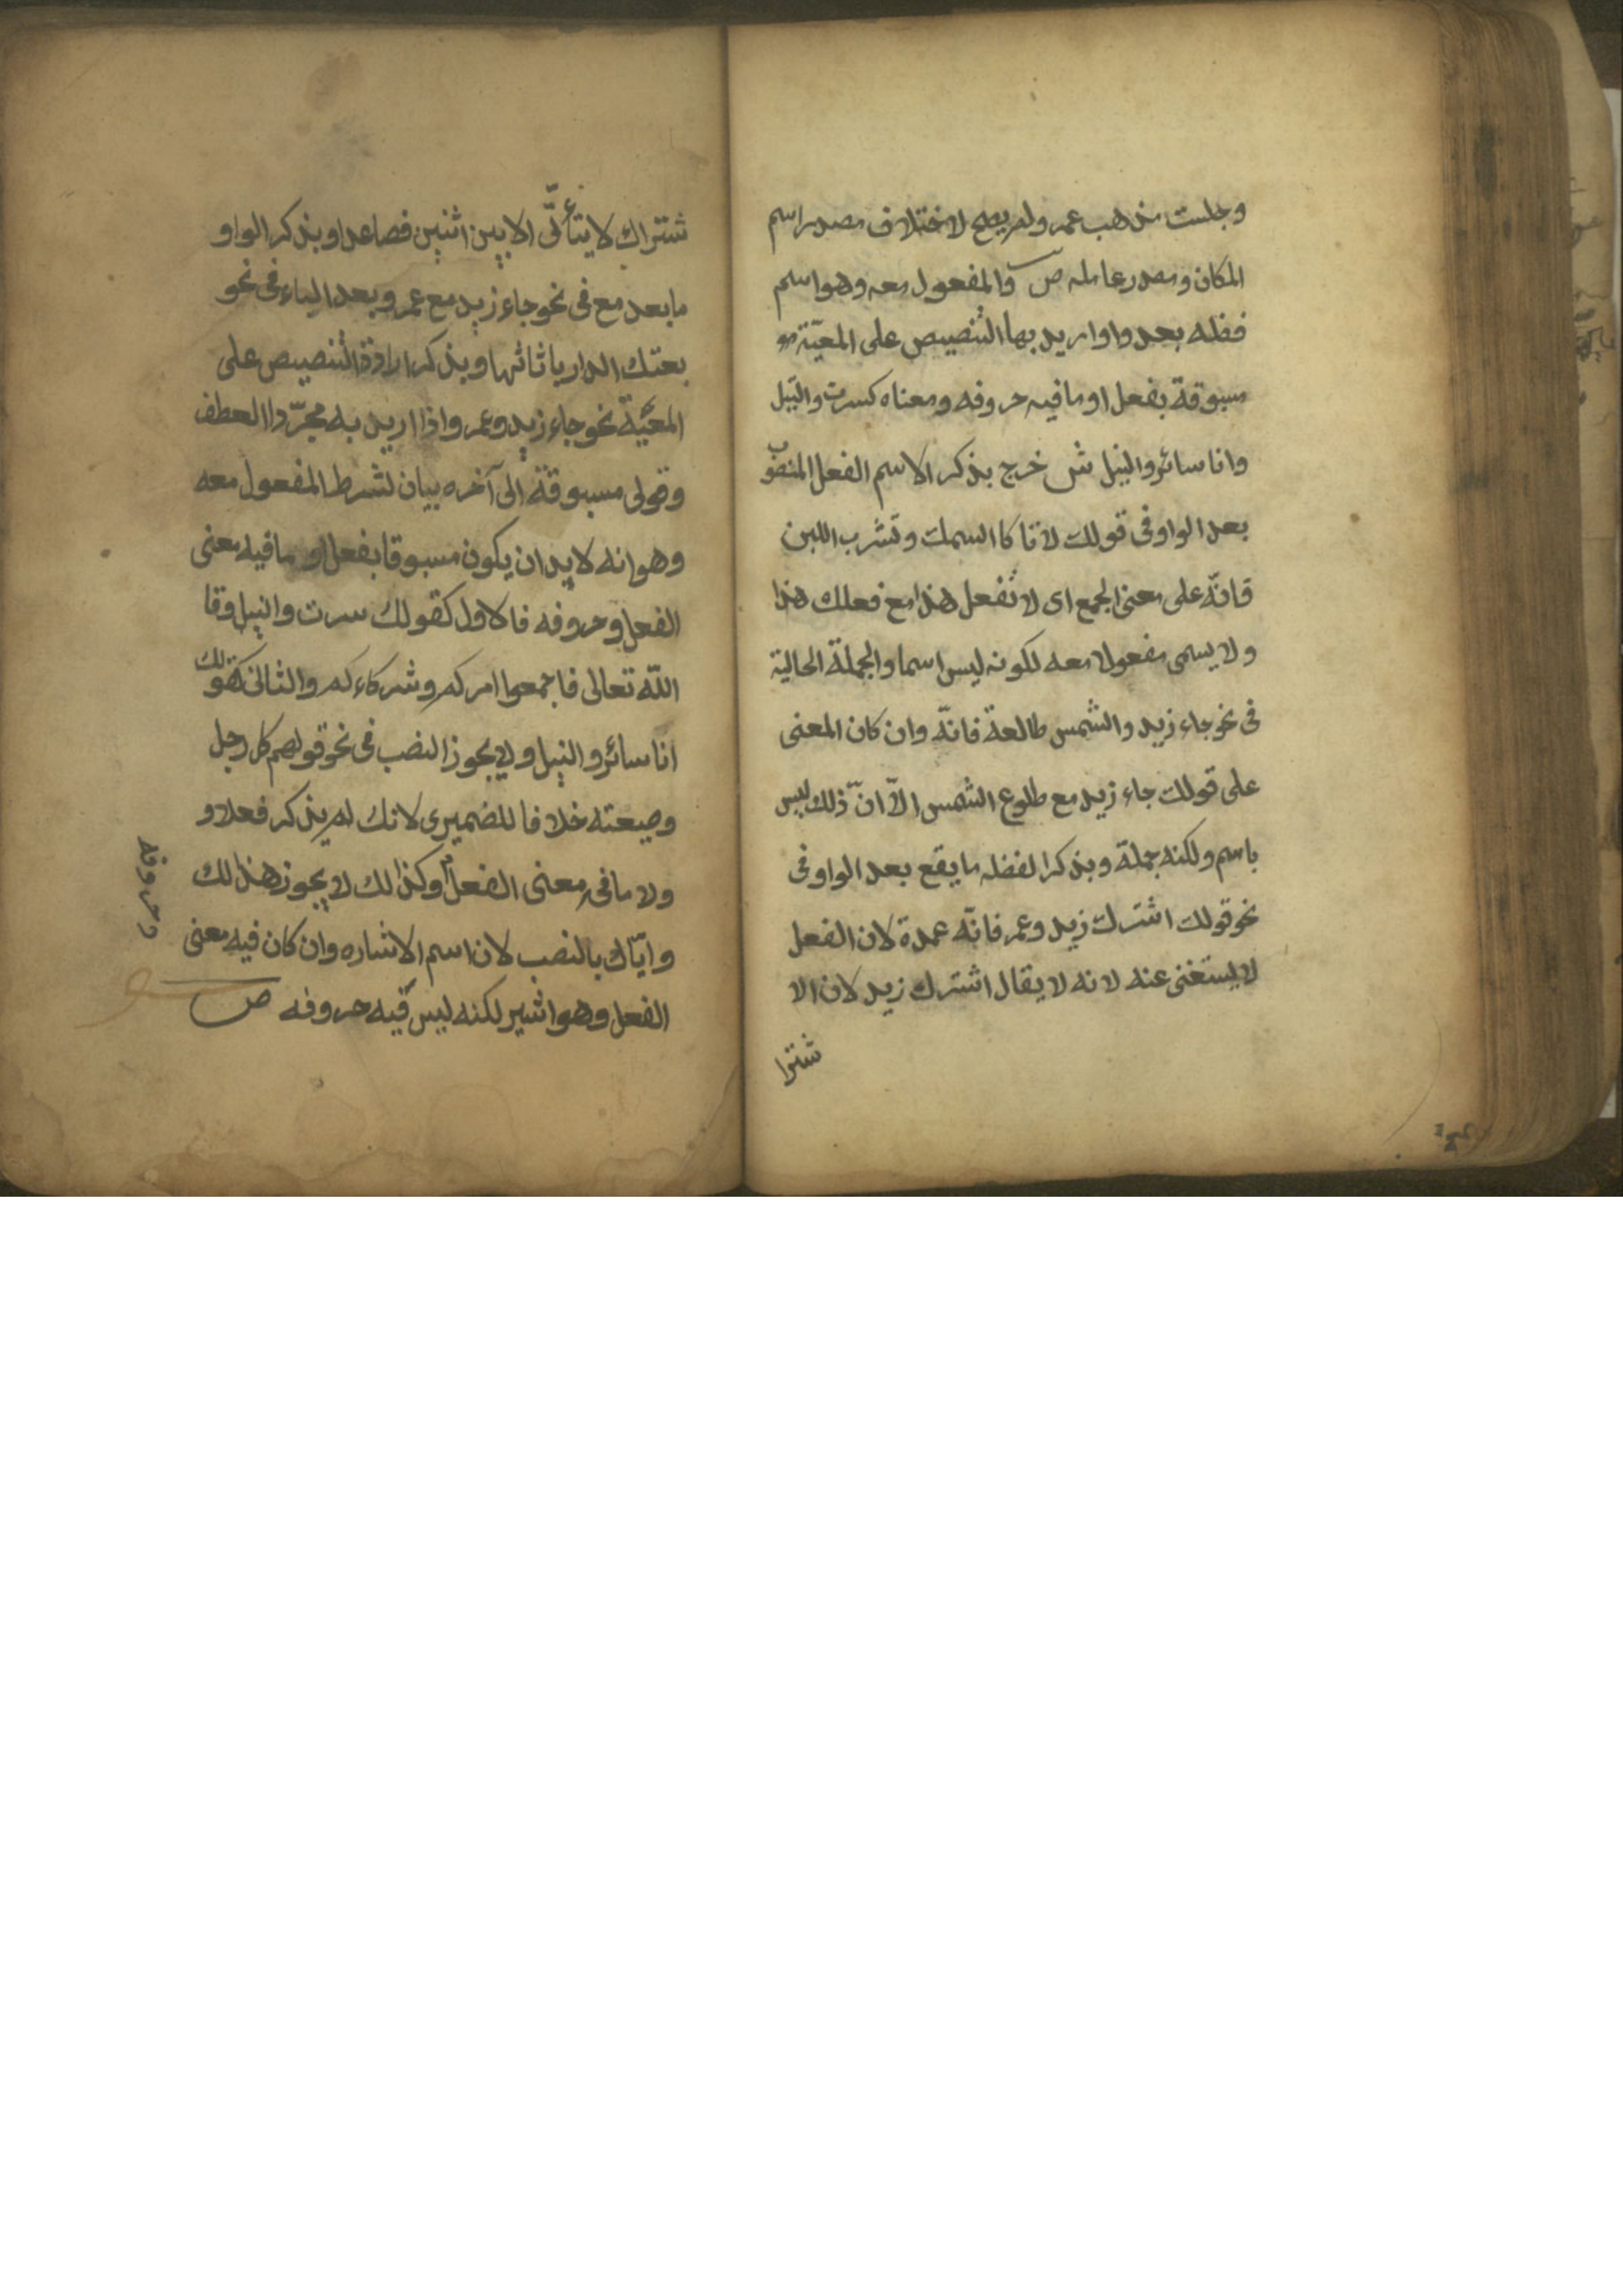 وجلست مذهب عمرو لم يصح لاختلاف مصدر اسم
المكان ومصدر عامله ص والمفعول معه وهو اسم
فظله بعد واو اريد بها التنصيص على المعيّة
مسبوقة بفعل او ما فيه حروفه ومعناه كسرت والنيل
وانا سائر والنيل ش خرج بذكر الاسم الفعل المنصوب
بعد الواو فى قولك لا تاكل السمك وتشرب اللبن
فانّه على معنى الجمع اى لا تفعل هذا مع فعلك هذا
ولا يسمى مفعولا معه لكونه ليس اسما والجملة الحالية
فى نحو جاء زيد والشمس طالعة فانّه وان كان المعنى
على قولك جاء زيد مع طلوع الشمس الاّ انّ ذلك ليس
باسم ولكنه جملة وبذكر الفضله ما يقع بعد الواو فى
نحو قولك اشترك زيد وعمر فانّه عمدة لان الفعل
لا يستغنى عنه لانه لا يقال اشترك زيد لان الا
شترا
شتراك لا يتأتّى الا بين اثنين فصاعدا وبذكر الواو
ما بعد مع فى نحو جاء زيد مع عمر وبعد الباء فى نحو
بعتك الدار باثاثها وبذكر ارادة التنصيص على
المعيّة نحو جاء زيد وعمر واذا اريد به مجرّدا العطف
وقولى مسبوقة الى آخره بيان لشرط المفعول معه
وهو انه لا بد ان يكون مسبوقا بفعل او ما فيه معنى
الفعل وحروفه فالاول كقولك سرت والنيل وقا
اللّه تعالى فاجمعوا امركم وشركاءكم والثانى كقولك
انا سائر والنيل ولا يجوز النصب فى نحو قولهم كل رجل
وصيعته خلافا للضميرى لانك لم يذكر فعلا و
ولا ما فى معنى الفعل وكذالك لا يجوز هذا لك
وايّاك بالنصب لان اسم الاشاره وان كان فيه معنى
الفعل وهو اشير لكنه ليس فيه حروفه ص